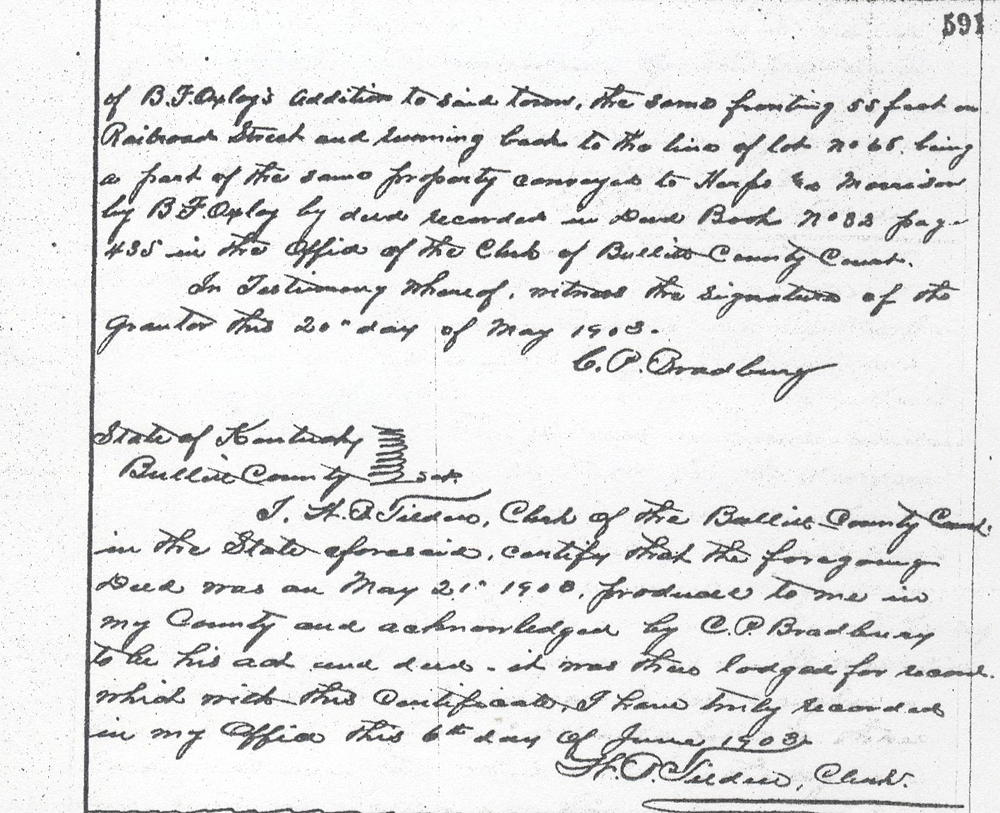 591
of B.F. Oxley's addition to said town, the same fronting 55 feet on
Railroad Street and running back to the line of lot No 66. being
a part of the same property conveyed to & Morrison
by B.F. Oxley by deed recorded in Deed Book No 32 page
435 in the Office of the Clerk of Bullitt County Court.
In Testimony whereof, witness the signature of the
Grantor this 20" day of May 1903.
C. P. Bradbury
State of Kentucky
Bullitt County sct.
I, Tilden, Clerk of the Bullitt County Court
in the State aforesaid, certify that the foregoing
Deed was on May 21" 1903, produced to me in
my County and acknowledged by C.P. Bradbury
to be his act and deed - it was then lodged for record.
which with this Certificate, I have truly recorded
in my Office this 6th day of June 1903.
Tilden, Clerk.